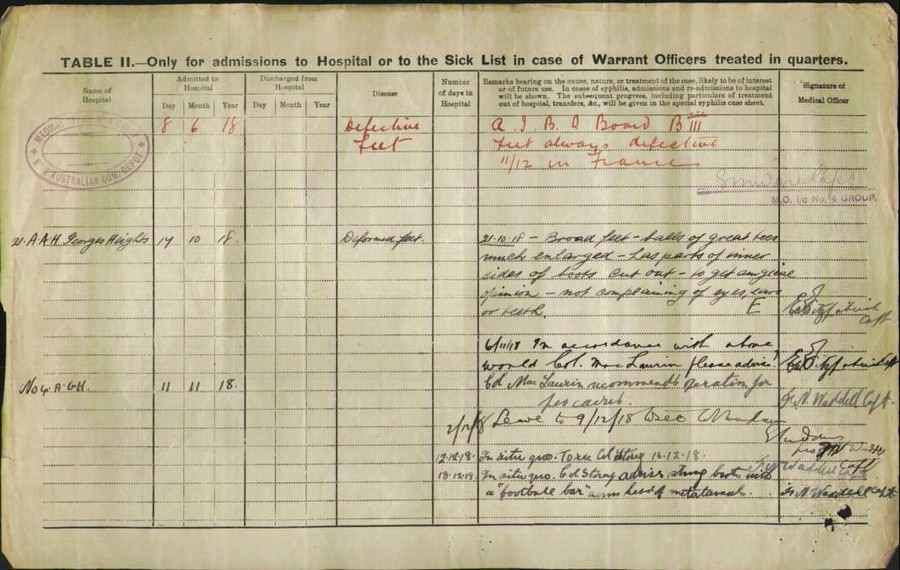 TABLE II.—Only for admissions to Hospital or to the Sick List in case of Warrant Officers treated in quarters.
Name of Hospital
Admitted to Hospital
Day Month Year
Discharged from Hospital
Day Month Year
Disease
Number of days in Hospital
Remarks bearing on the cause, nature, or treatment of the case, likely to be of interest
or of future use. In cases of syphilis, admissions and re-admissions to hospital
will be shown. The subsequent progress, including particulars of treatment
out of hospital, transfers, &c., will be given in the special syphilis case sheet.
Signature of Medical Officer
AUSTRALIAN COM. DEPOT
8 6 18
Defective
feet
Board B III
feet always defective
11/12 in France
M.O. i/c No. 4 GROUP.
21. A.A.H. Georges Heights 14 10 18.
Deformed feet.
21.10.18 - Broad feet - balls of great toes
much enlarged - has parts of inner
sides of boots cut out - to get
opinion - not complaining of eyes, ears
or teeth.
Capt
6/11/18 In accordance with above
would Col. MacLaurin please advise
No 4. A.G.H. 11 11 18.
Col MacLaurin recommends operation for
N. Waddell Capt.
2/12/18 Leave to 9/12/18
12.12.18. In situ quo. Col Storey 16.12.18.
Waddell Capt
18.12.18. In situ quo. Col Storey advises strong boots with
a "football bar" head of metatarsals.
N. Waddell Capt